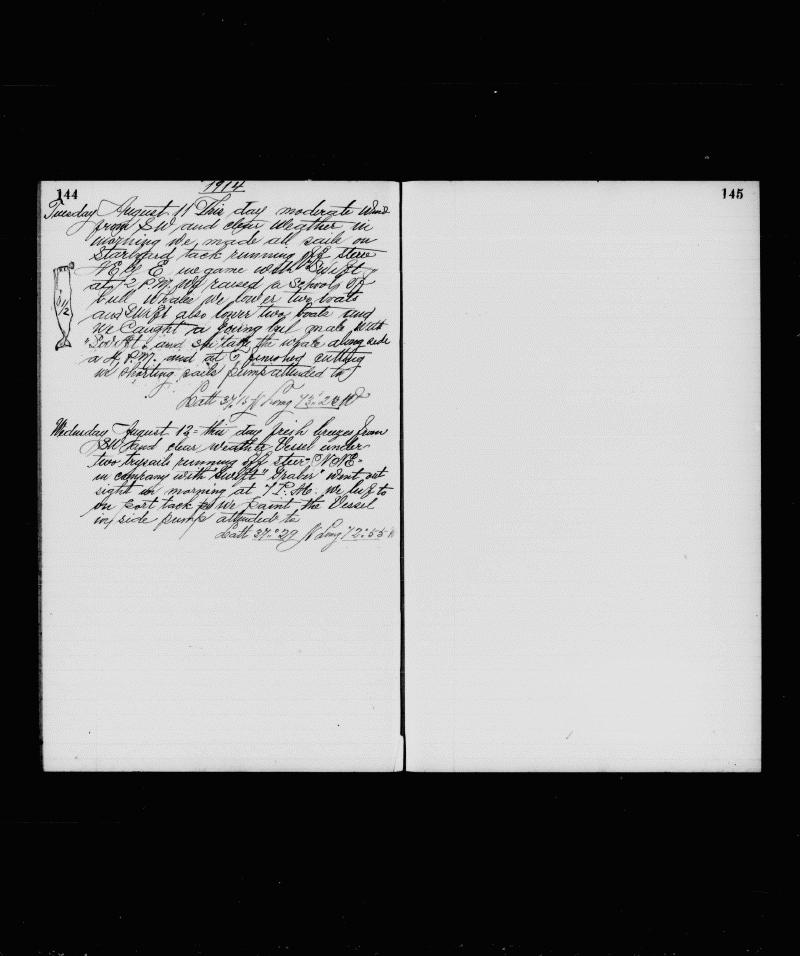 144
1914
Tuesday August 11 This day moderate wind
from SW and clear weather in
morning we made all sails on
Starboard tack running off steer
NE by E we game with "Swift"
at 2 P.M. we raised a School of
bull whales we lower two boats
and Swift also lower two boats and
we caught a young bull mate with
"Swift" and she take the whale along side
a 4 P.M. and at 7 finished cutting
we shorting sails pump attended to
Latt 37° 15 N Long 73° 28 W
1/2
Wednesday August 12 = this day fresh breezes from
SW and clear weather Vessel under
two trysails running off steer "NNE"
in company with Swift "Graber" went out
sight in morning at 7 P.M. we luf to
on port tack we paint the Vessel
in side pump attended to
Latt 37° 29 N Long 72° 55 W
145